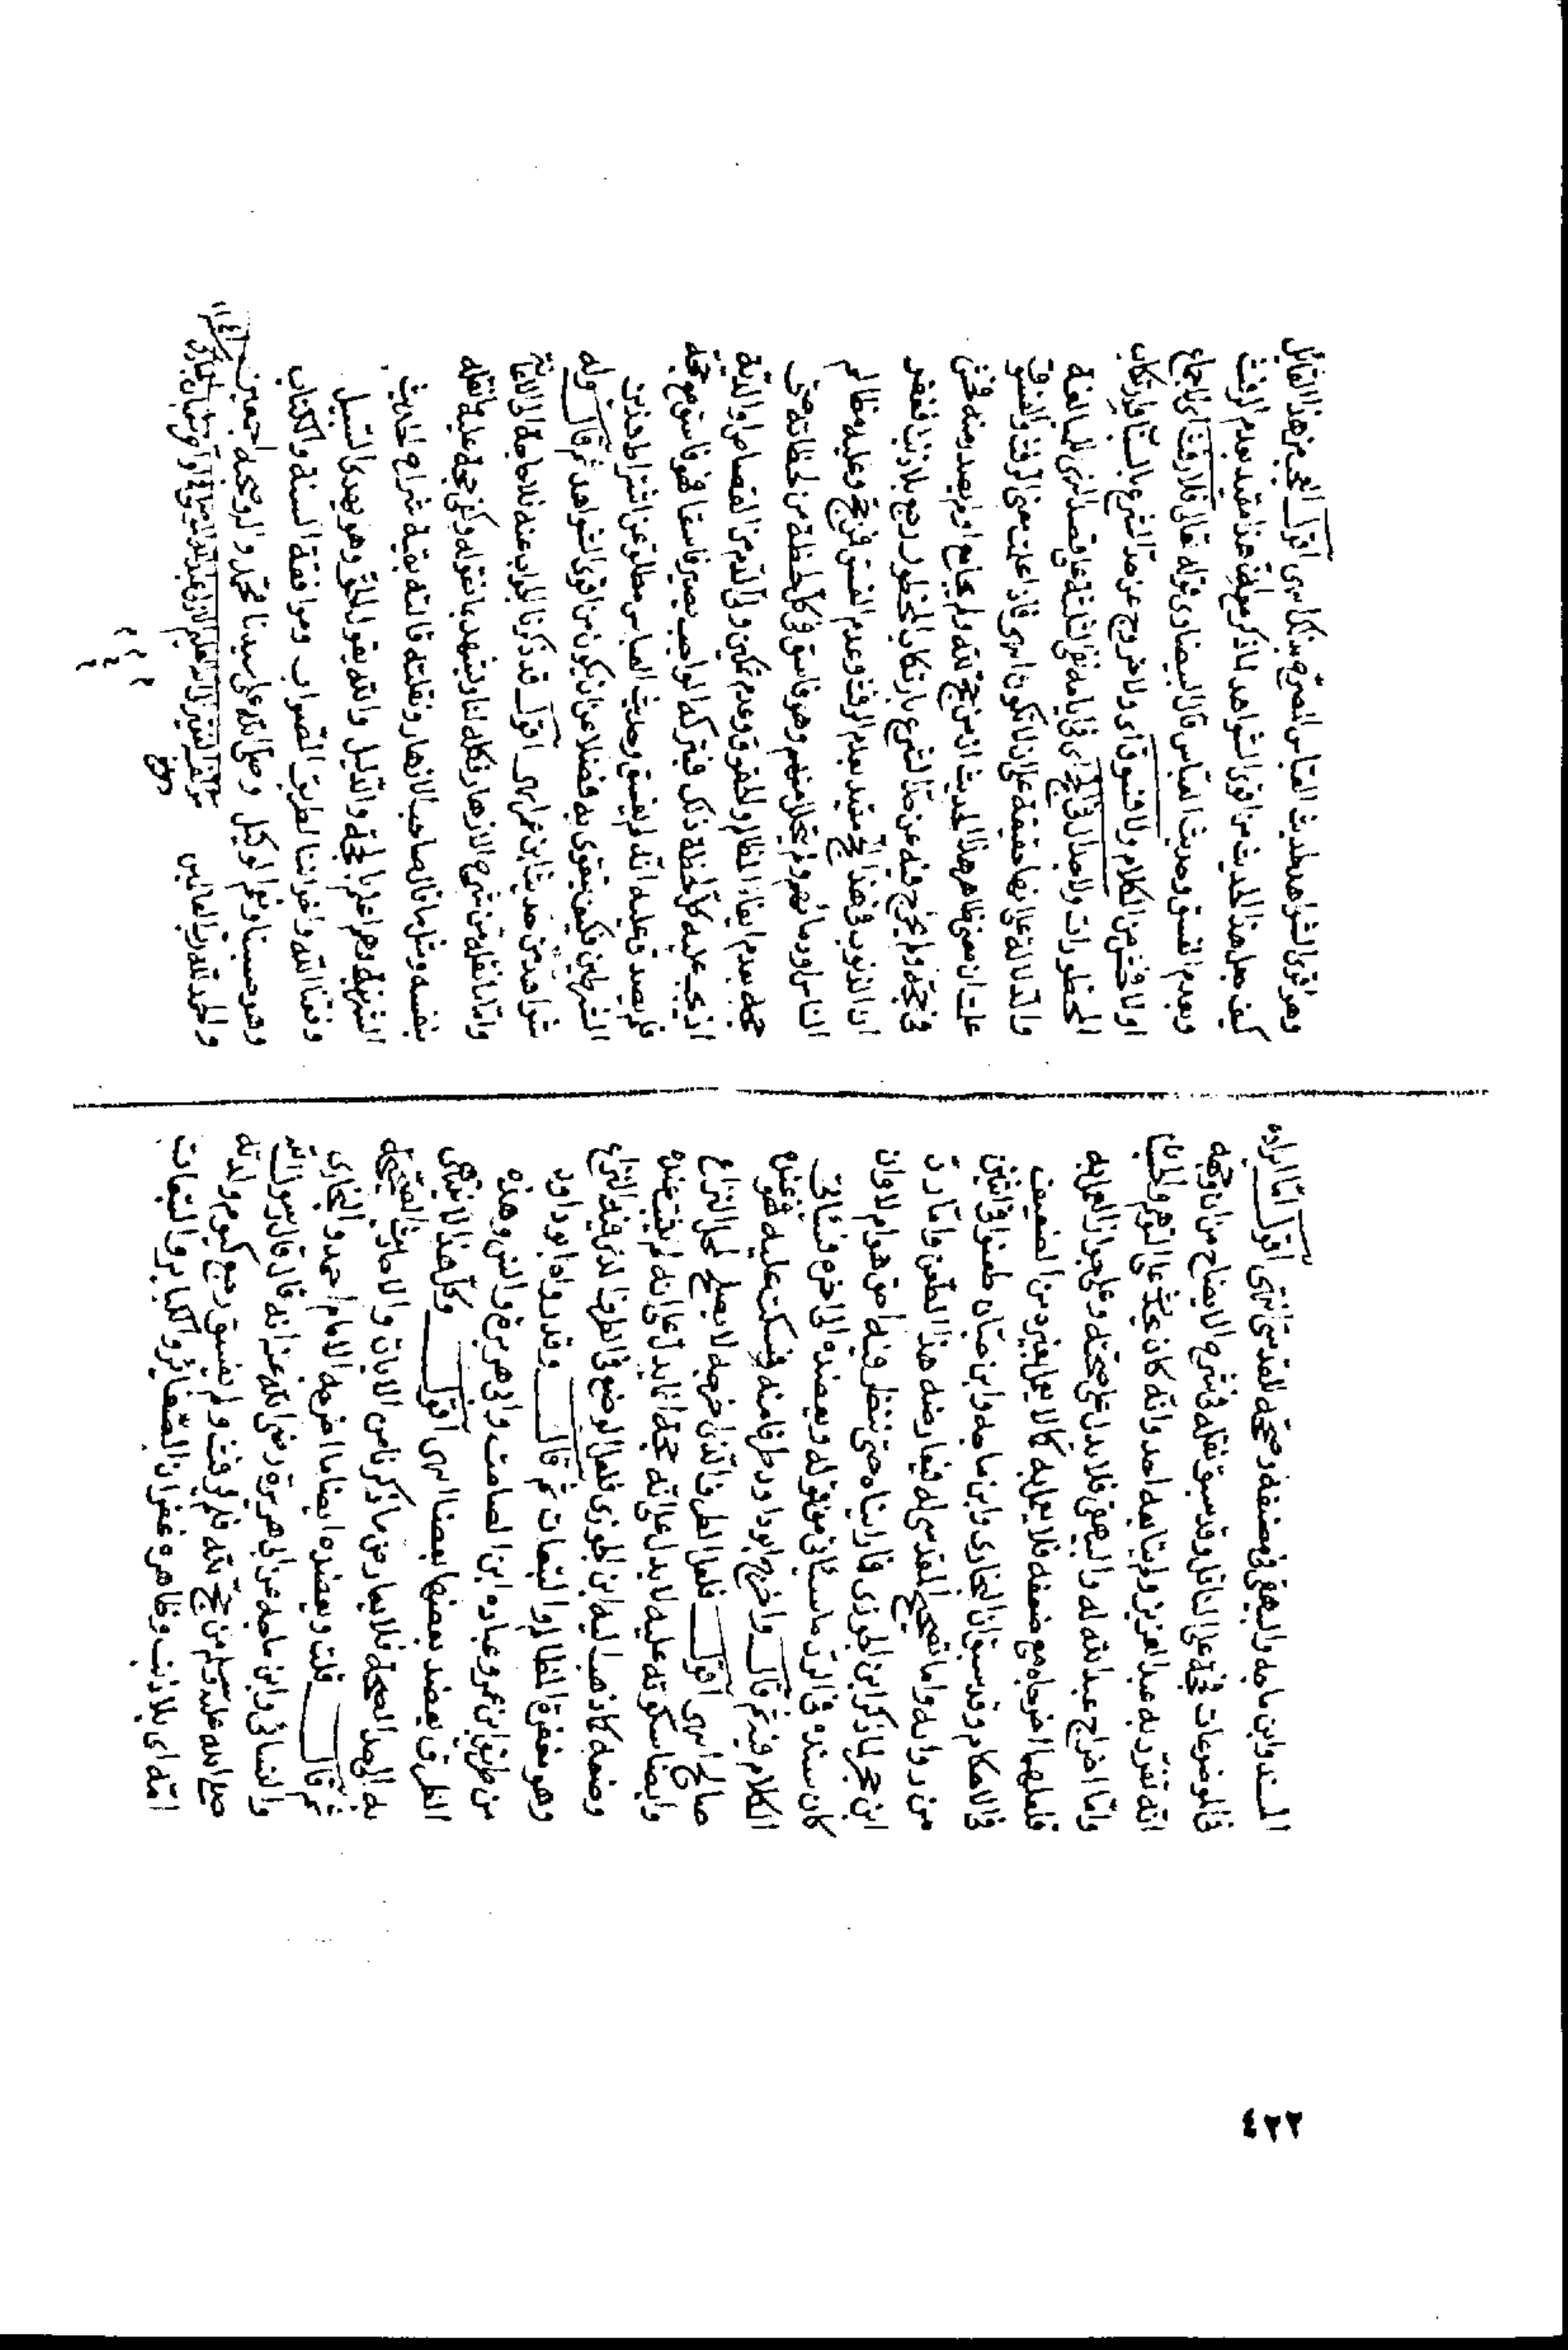 المسند وابن ماجه والبيهقى فى مصنفه وصححه المقدسى انتهى اقول اما ايراده
فى الموضوعات فحجة على الناقل وقد سبق نقله فى شرح الايضاح من ان وجهه
انه تفرد به عبد العزيز ولم يتابعه احد وانه كان يحدث على التوهم والحسبان
واما اخراج عبد الله له والبيهقى فلا يدل على صحته وعلى جواز العمل به
فلعلهما اخرجاه مع ضعفه فلا يعمل به كما لا يعمل بغيره من الضعيف
فى الاحكام وقد سبق ان البخارى وابن ماجه وابن حبان طعنوا فى اثنين
من رواته واما تصحيح المقدسى له فيعارضه هذا الطعن واما
ابن حجر لما ذكر ابن الجوزى حتى ننظر فيه احق هو ام لا وان
كان سنده فى الرد ما سيأتى من قوله ويعضده الى اخره فسيأتى
الكلام فيه ثم قال واخرج ابو داود طرفا منه وسكت عليه فهو عنده
صالح انتهى اقول فلعل الطرف الذى خرجه لا يصلح لمحل النزاع
وايضا سكوته عليه لا يدل على انه حجة انما يدل على انه لم يثبت عنده
وضعه كما ذهب اليه ابن الجوزى فلعل الوضع فى الطرف الذى فيه النزاع
وهو مغفرة المظالم والتبعات ثم قال وقد رواه ابو داود
من طريق ابن عمر وعباده ابن الصامت وابى هريرة وانس وهذه
الطرق يعضد بعضها بعضا انتهى اقول وكل هذا لا ينتهى
به الى حد الصحة فلا يعارض ما ذكرنا من الايات والاحاديث الصحيحة
ثم قال قلت ويعضده ايضا ما اخرجه الامام احمد والبخارى
والنسائى وابن ماجه عن ابى هريرة رضى الله عنه انه قال قال رسول الله
صلى الله عليه وسلم من حج لله فلم يرفث ولم يفسق رجع كيوم ولدته
امه اى بلا ذنب وظاهره غفران الصغائر والكبائر والتبعات
وهو اقوى الشواهد لحديث العباس المصرح بذلك انتهى اقول العجب من هذا القائل
كيف جعل هذا الحديث من اقوى الشواهد لما ذكر مع ان هذا مقيد بعدم الرفث
وبعدم الفسق وحديث العباس قال البيضاوى فى قوله تعالى فلا رفث اى لا جماع
او لا فحش من الكلام ولا فسوق اى ولا خروج عن حد الشرع بالسباب وارتكاب
المحظورات ولا جدال فى الحج اى فى ايامه نفى الثلثة على قصد النهى للمبالغة
والدلالة على انها حقيقة على ان لا تكون انتهى فاذا علمت معنى الرفث والفسوق
علمت ان معنى ظاهر هذا الحديث ان من حج لله ولم يجامع او لم يصدر منه فحش
فى حجه ولم يخرج فيه عن حد الشرع بارتكاب المحظور رجع بلا ذنب فغفر
ان الذنوب فى هذا الحج مقيد بعدم الرفث وعدم الفسق فمن حج وعليه مظالم
الناس ودمائهم ولم يتحلل منهم وهو فاسق فى كل لحظة من لحظاته حتى
حجه بعدم ايفاء المظالم والحقوق وعدم تمكين ولى الدم من القصاص او الدية
اذ يجب عليه كل لحظة ذلك فبتركه الواجب يصير فاسقا فهو فاسق مع حجه
فلم يصدق عليه انه لم يفسق وحديث العباس مطلق عن اشتراط هذين
الشرطين فكيف يتقوى به فضلا عن ان يكون من اقوى الشواهد ثم قال وله
شواهد من حديث ابن عمر انتهى اقول قد ذكرنا الجواب عنه فلا حاجة الى الاعادة
واما ما نقله من شرح الازهار فكله لنا ويشهد بما نقوله وكفى حجة عليه ما نقله
بنفسه ومثل ما قال صاحب الازهار ونقلته قال به بقية شراح الحديث
النبويه وهم اعلم بالحجة والدليل والله يقول الحق وهو يهدى السبيل
وفقنا الله واخواننا لطريق الصواب وموافقة السنة والكتاب
وهو حسبنا ونعم الوكيل وصلى الله على سيدنا محمد واله وصحبه اجمعين
والحمد لله رب العالمين
٤٢٢